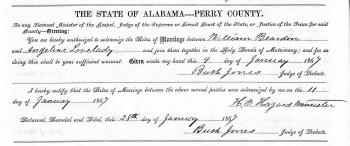 THE STATE OF ALABAMA—PERRY COUNTY.
To any Licensed Minister of the Gospel, Judge of the Supreme or Circuit Court of the State, or Justice of the Peace for said
County—Greeting:
You are hereby authorized to solemnize the Rites of Marriage between William Beardon
and Angeline Lovelady and join them together in the Holy Bonds of Matrimony; and for so
doing this shall be your sufficient warrant. Given under my hand this 9 day of January 1867
Bush Jones Judge of Probate.
I hereby certify that the Rites of Marriage between the above named parties were solemnized by me on the 11
day of January 1867 Minister
Returned, Recorded and Filed, this 28th day of January 1867
Bush Jones
Judge of Probate.